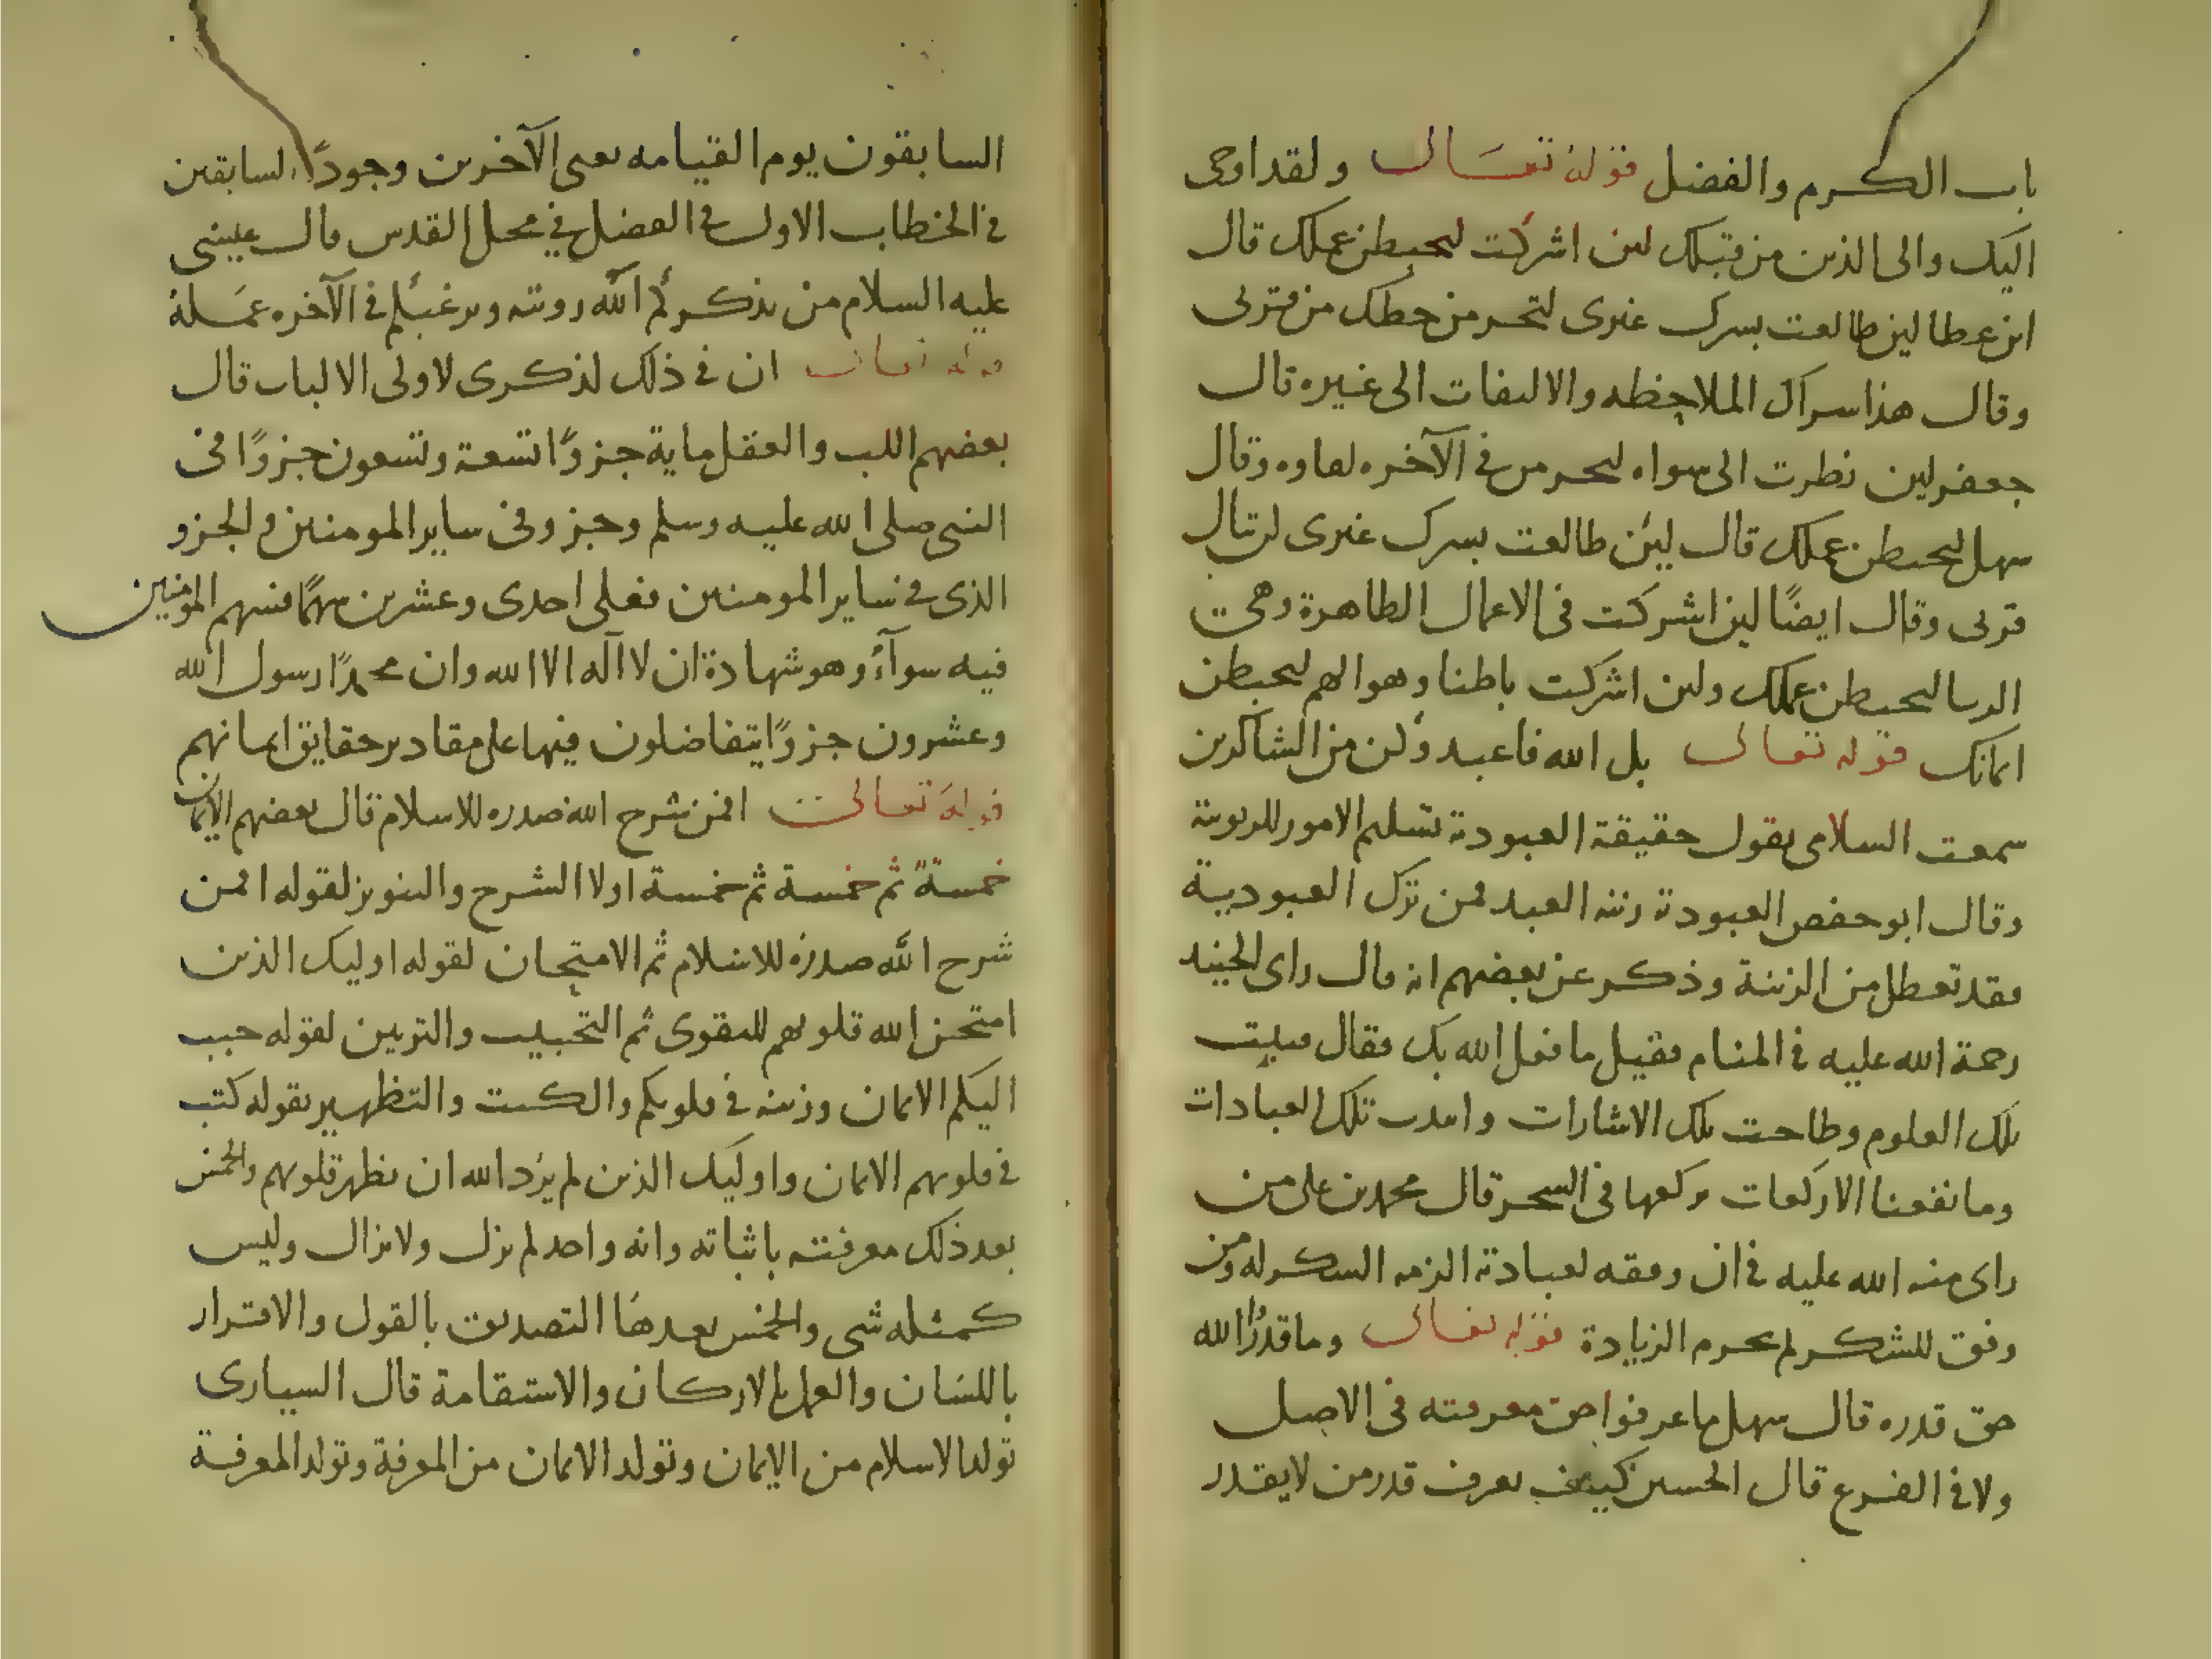 باب الكرم والفضل قوله تعالى ولقد اوحى
اليك والى الذين من قبلك لىن اشركت ليحبطن عملك قال
ابن عطا لين طالعت بسرك غيرى لتحرمن حظك من قربى
وقال هذا سراك الملاحظه والالىفات الى غيره قال
جعفر لين نظرت الى سواه لىحرمن فى الآخره لقاوه وقال
سهل ليحبطن عملك قال ليئن طالعت بسرك غيرى لن تنال
قربى وقال ايضًا لين اشركت فى الاعمال الظاهرة وهى
الدىىا لىحبطن عملك ولىن اشركت باطنا وهو الهم لىحبطن
ايمانك قوله تعالى بل الله فاعبد وكن من الشاكرين
سمعت السلامى يقول حقيقة العبودىة تسليم الامور للربوبية
وقال ابو حفص العبودىة زينة العبد فمن ترك العبودية
فقد تعطل من الزينة وذكر عن بعضهم انه قال راى الجنيد
رحمة الله عليه فى المنام فقيل ما فعل الله بك فقال فنيت
تلك العلوم وطاحت تلك الاشارات وابيدت تلك العبادات
وما نفعنا الا ركعات نركعها فى السحر قال محمد بن على من
راى منه الله عليه فى ان وفقه لعبادته الزمه الشكر له ومن
وفق للشكر لم يحرم الزيادة قوله تعالى وما قدرُوا الله
حق قدره قال سهل ما عرفوا حق معرفته فى الاصل
ولا فى الفرع قال الحسين كيف يعرف قدر من لا يقدر
السابقون يوم القيامه يعنى الآخرين وجودًا السابقين
فى الخطاب الاول فى الفضل فى محل القدس قال عيسى
عليه السلام من يذكركُم الله رويته ويرغبكم فى الآخره عَمَلهُ
قوله تعالى ان فى ذلك لذكرى لاولى الالباب قال
بعضهم اللب والعقل ماية جزوًا تسعة وتسعون جزوًا فى
النبى صلى الله عليه وسلم وجزو فى ساير المومنين والجزو
الذى فى ساير المومنين فعلى احدى وعشرين سهمًا فسهم المومنين
فيه سوآءُ وهو شهادة ان لا اله الا الله وان محمدًا رسول الله
وعشرون جزوًا يتفاضلون فيها على مقادير حقايق ايمانهم
قوله تعالى افمن شرح الله صدره للاسلام قال بعضهم الايمان
خمسة ثم خمسة ثم خمسة اولا الشرح والتنوير لقوله افمن
شرح الله صدره للاسلام ثم الامتحان لقوله اوليك الذين
امتحن الله قلوبهم للتقوى ثم التحبيب والتزيين لقوله حبب
اليكم الايمان وزينه فى قلوبكم والكتب والتطهير بقوله كتب
فى قلوبهم الايمان واوليك الذين لم يرد الله ان يطهر قلوبهم والخمس
بعد ذلك معرفته باثباته وانه واحد لم يزل ولا يزال وليس
كمثله شى والخمس بعدها التصديق بالقول والاقرار
باللسان والعمل بالاركان والاستقامة قال السيارى
تولد الاسلام من الايمان وتولد الايمان من المعرفة وتولد المعرفة